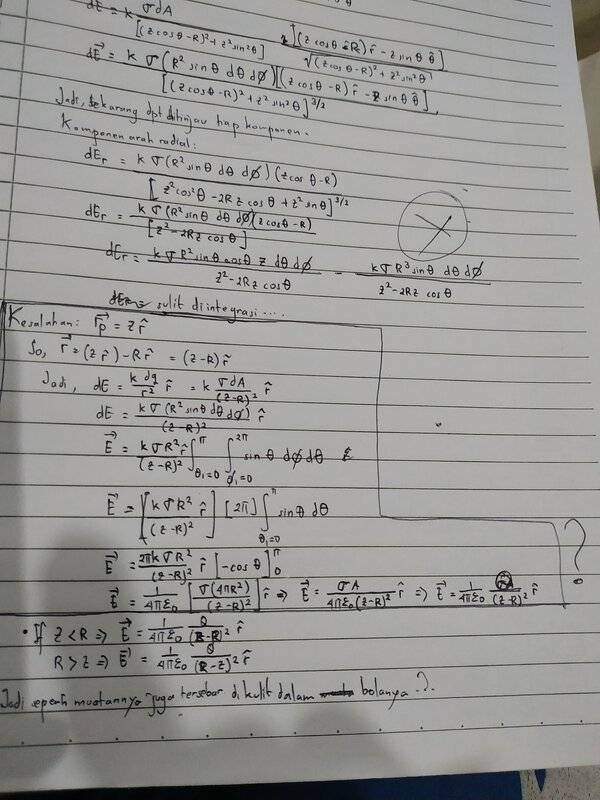 dE = k σ dA / [(z cos θ - R)² + z² sin² θ] [(z cos θ - R) r̂ - z sin θ θ̂] / √((z cos θ - R)² + z² sin² θ)
dE⃗ = k σ (R² sin θ dθ dφ)[(z cos θ - R) r̂ - z sin θ θ̂] / [(z cos θ - R)² + z² sin² θ]^3/2,
Jadi, sekarang dpt ditinjau tiap komponen.
Komponen arah radial:
dEr = k σ (R² sin θ dθ dφ)(z cos θ - R) / [z² cos² θ - 2R z cos θ + z² sin θ]^3/2
dEr = k σ (R² sin θ dθ dφ)(z cos θ - R) / [z² - 2Rz cos θ]
dEr = k σ R² sin θ cos θ z dθ dφ / z² - 2Rz cos θ - k σ R³ sin θ dθ dφ / z² - 2Rz cos θ
sulit diintegrasi ....
Kesalahan: r⃗p = z r̂
So, r⃗ = (z r̂) - R r̂ = (z - R) r̂
Jadi, dE = k dq / r² r̂ = k σ dA / (z - R)² r̂
dE = k σ (R² sin θ dθ dφ) / (z - R)² r̂
E⃗ = k σ R² r̂ / (z - R)² ∫ θ₁=0 π ∫ φ₁=0 2π sin θ dφ dθ
E⃗ = [k σ R² / (z - R)² r̂] [2π] ∫ θ₁=0 π sin θ dθ
E⃗ = 2πk σ R² / (z - R)² r̂ [-cos θ] 0 π
E⃗ = 1 / 4πε₀ [σ(4πR²) / (z - R)²] r̂ => E⃗ = σA / 4πε₀(z - R)² r̂ => E⃗ = 1 / 4πε₀ Q / (z - R)² r̂
?
• If z < R => E⃗ = 1 / 4πε₀ Q / (z - R)² r̂
R > z => E⃗ = 1 / 4πε₀ Q / (R - z)² r̂
Jadi muatannya juga tersebar di kulit dalam bolanya ?.